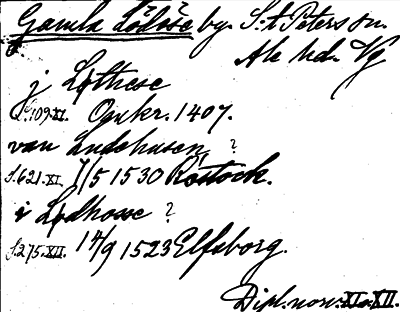 Gamla Lödöse by. S:t Peters sn.
Ale hd. Vg
j Lothese
S.109.XI. Omkr. 1407.
van Ludehusen ?
S.621.XI. 7/5 1530 Rostock.
i Lodhosse ?
S.275.XII. 14/9 1523 Elfsborg.
Dipl. norv. XI o. XII.